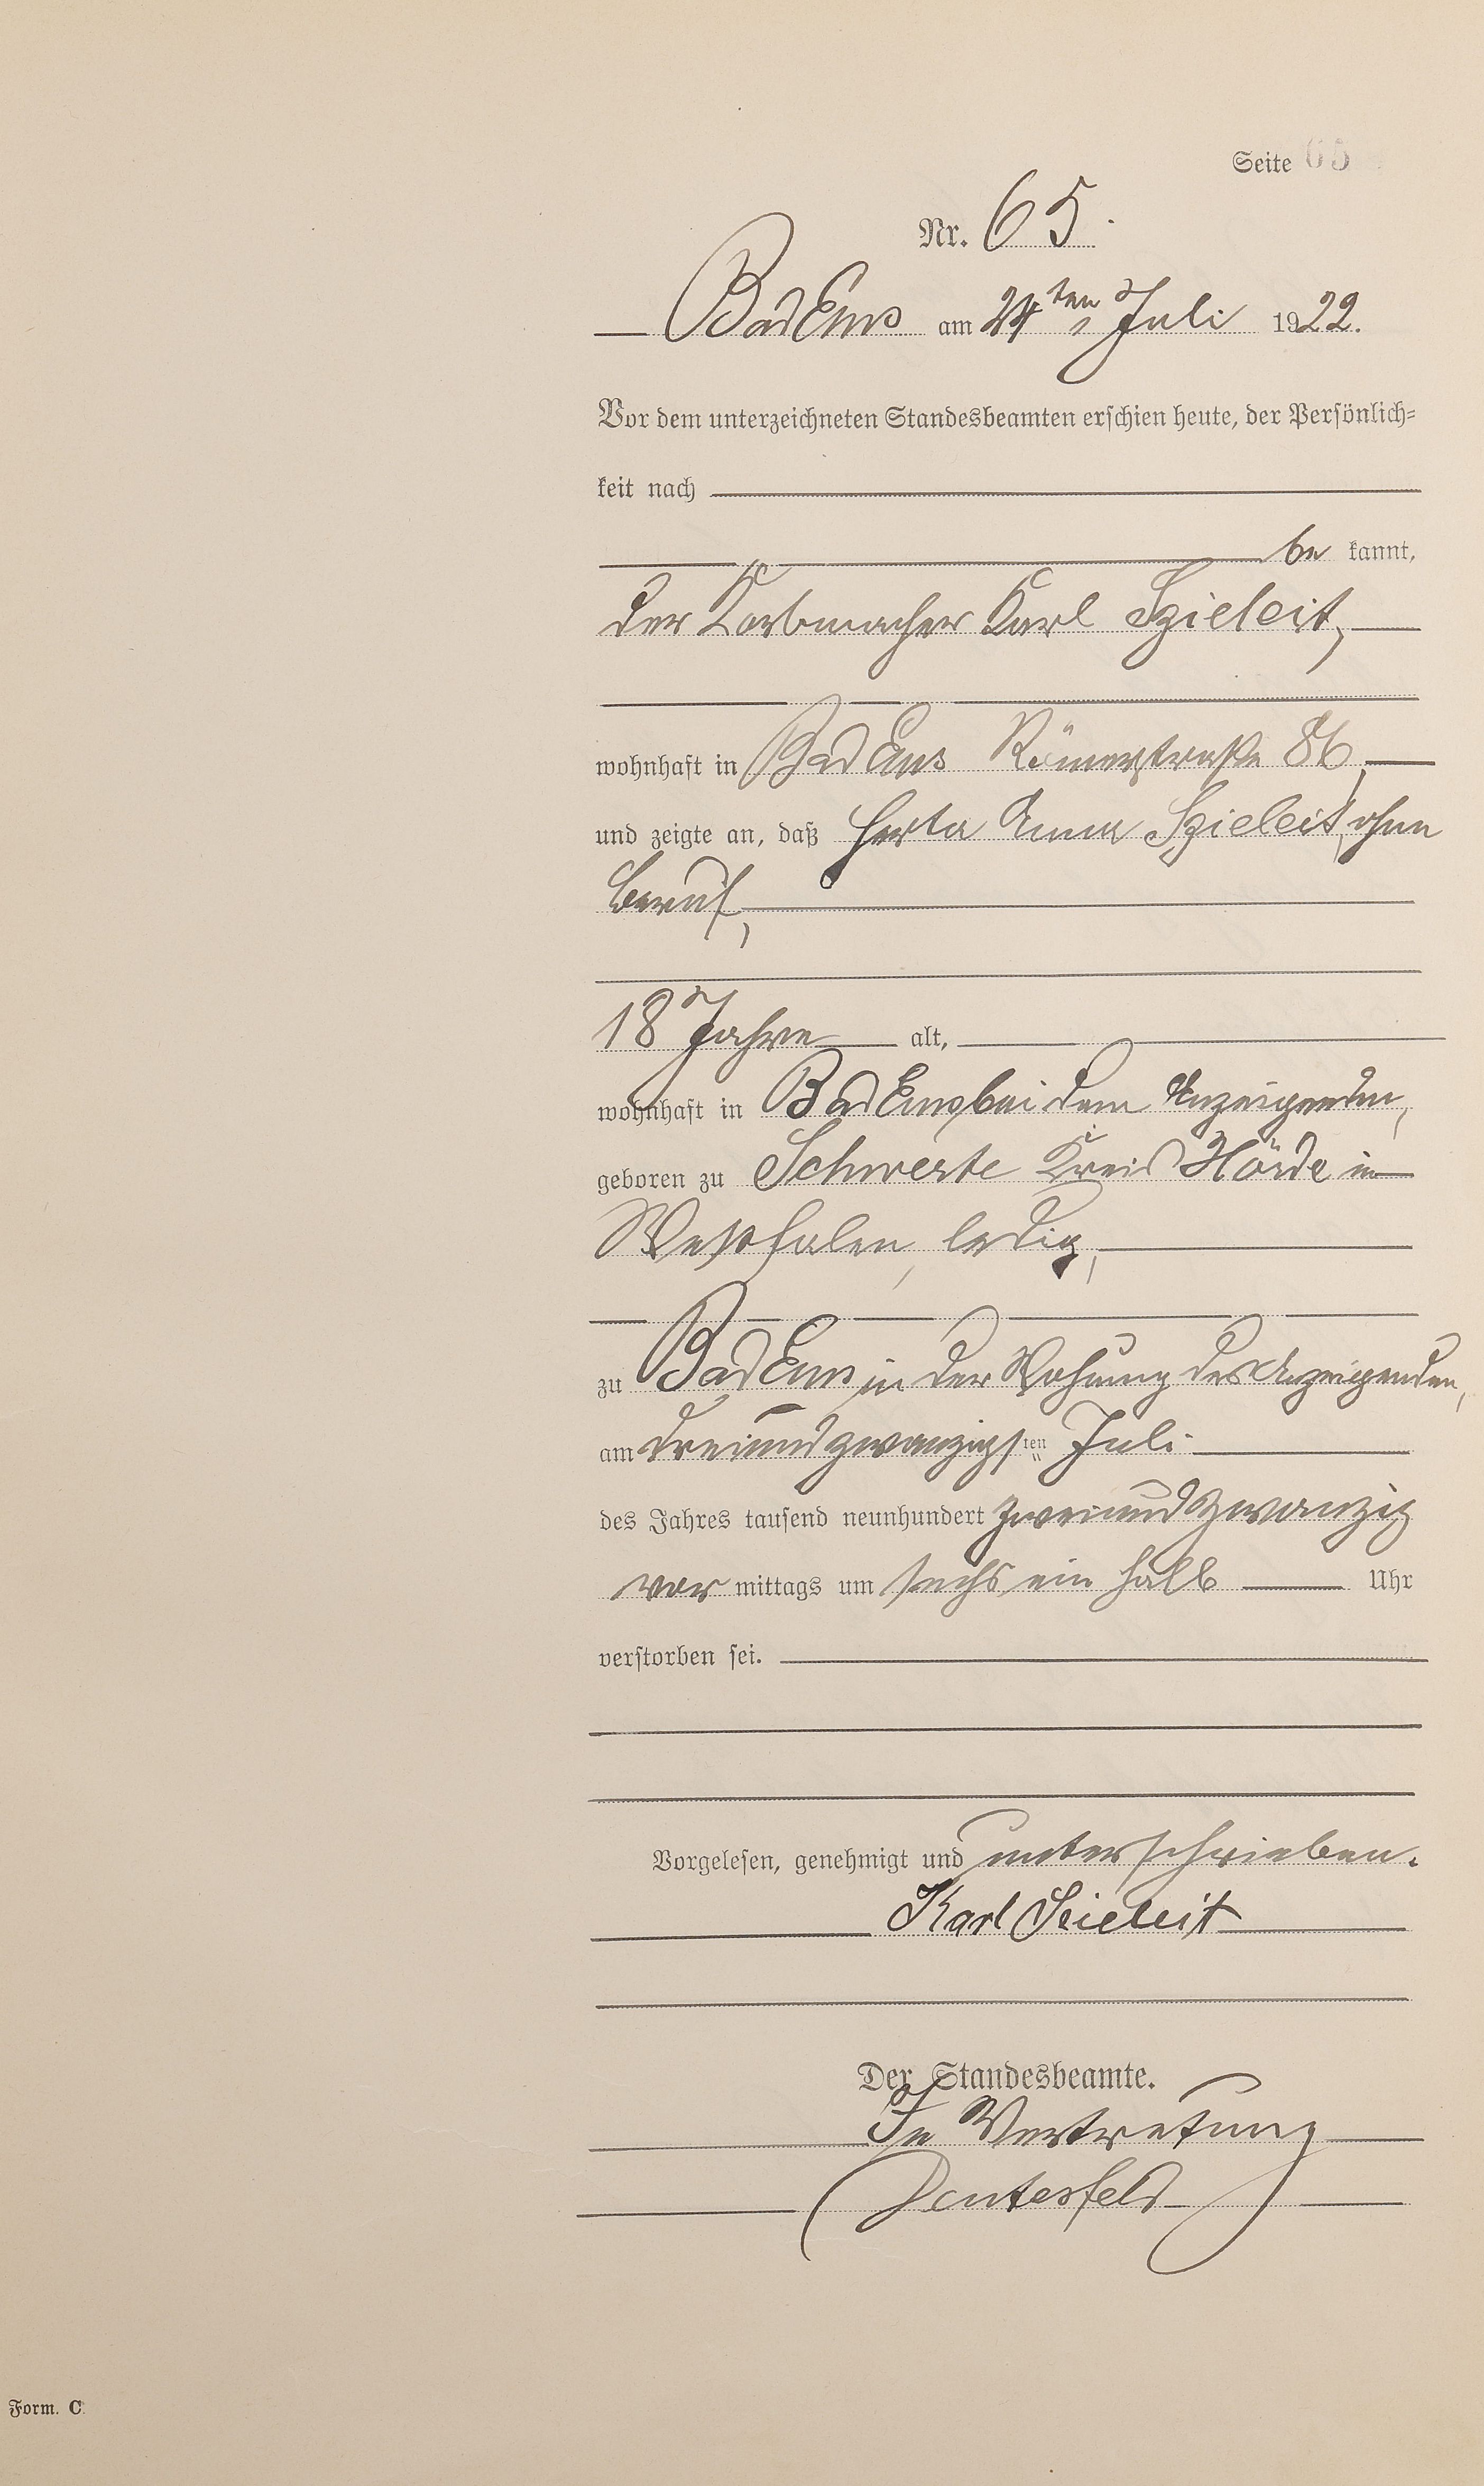 Seite 65
Nr. 65.
Bad Ems am 24ten Juli 1922.
Vor dem unterzeichneten Standesbeamten erschien heute, der Persönlich-
keit nach
be kannt,
der Korbmacher Karl Szieleit,
wohnhaft in Bad Ems Römerstraße 86,
und zeigte an, daß Herta Anna Szieleit, ohne
Beruf,
18 Jahre alt,
wohnhaft in Bad Ems bei dem Anzeigenden,
geboren zu Schwerte Kreis Hörde in
Westfalen, ledig,
zu Bad Ems in der Wohnung des Anzeigenden,
am dreiundzwanzigsten Juli
des Jahres tausend neunhundert zweiundzwanzig
vor mittags um sechs ein halb Uhr
verstorben sei.
Vorgelesen, genehmigt und unterschrieben.
Karl Szieleit
Der Standesbeamte.
In Vertretung
Form. C.